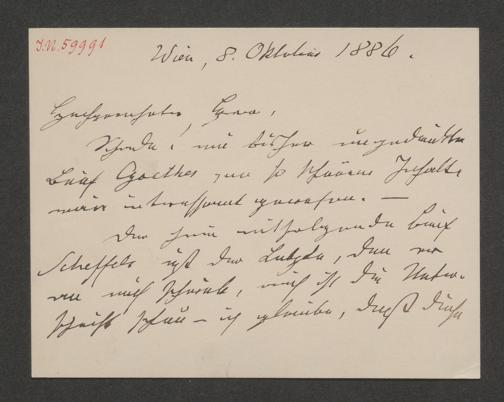 I.N. 59991
Wien, 8. Oktober 1886.
Hochverehrter Herr,
Schade! ein bisher ungedruckter
Brief Goethes von so schönem Inhalte
wäre interessant gewesen. —
Der hier mitfolgende Brief
Scheffels ist der Letzte, den er
an mich schrieb, auch ist die Unter-
schrift — ich glaube, daß diese